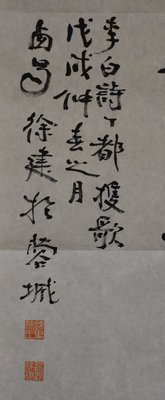 李白詩丁都護歌
戊戌仲春之月
西昌徐建於蓉城